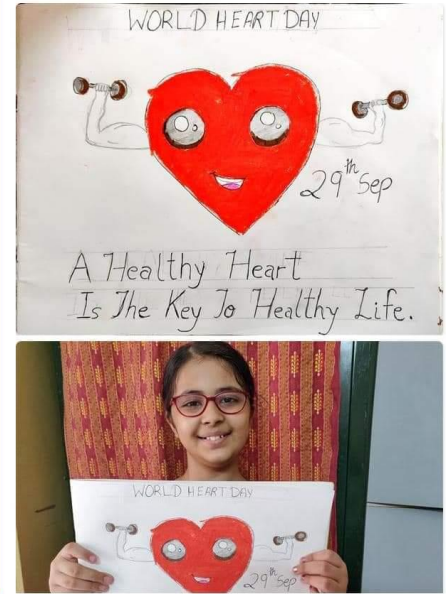 WORLD HEART DAY
29th Sep
A Healthy Heart
Is The Key To Healthy Life.
WORLD HEART DAY
29th Sep